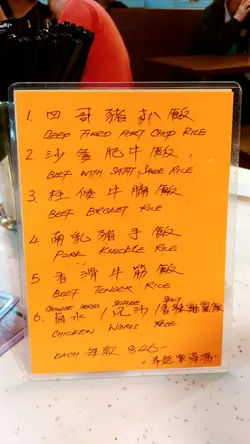 1. 四哥豬扒飯
DEEP FRIED PORK CHOP RICE
2. 沙爹肥牛飯
BEEF WITH SATAY SAUCE RICE
3. 柱侯牛腩飯
BEEF BRISKET RICE
4 南乳豬手飯
PORK KNUCKLE RICE
5 香滑牛筋飯
BEEF TENDER RICE
6. 鹵水 /
CHICKEN WINGS RICE
EACH 每款 $46